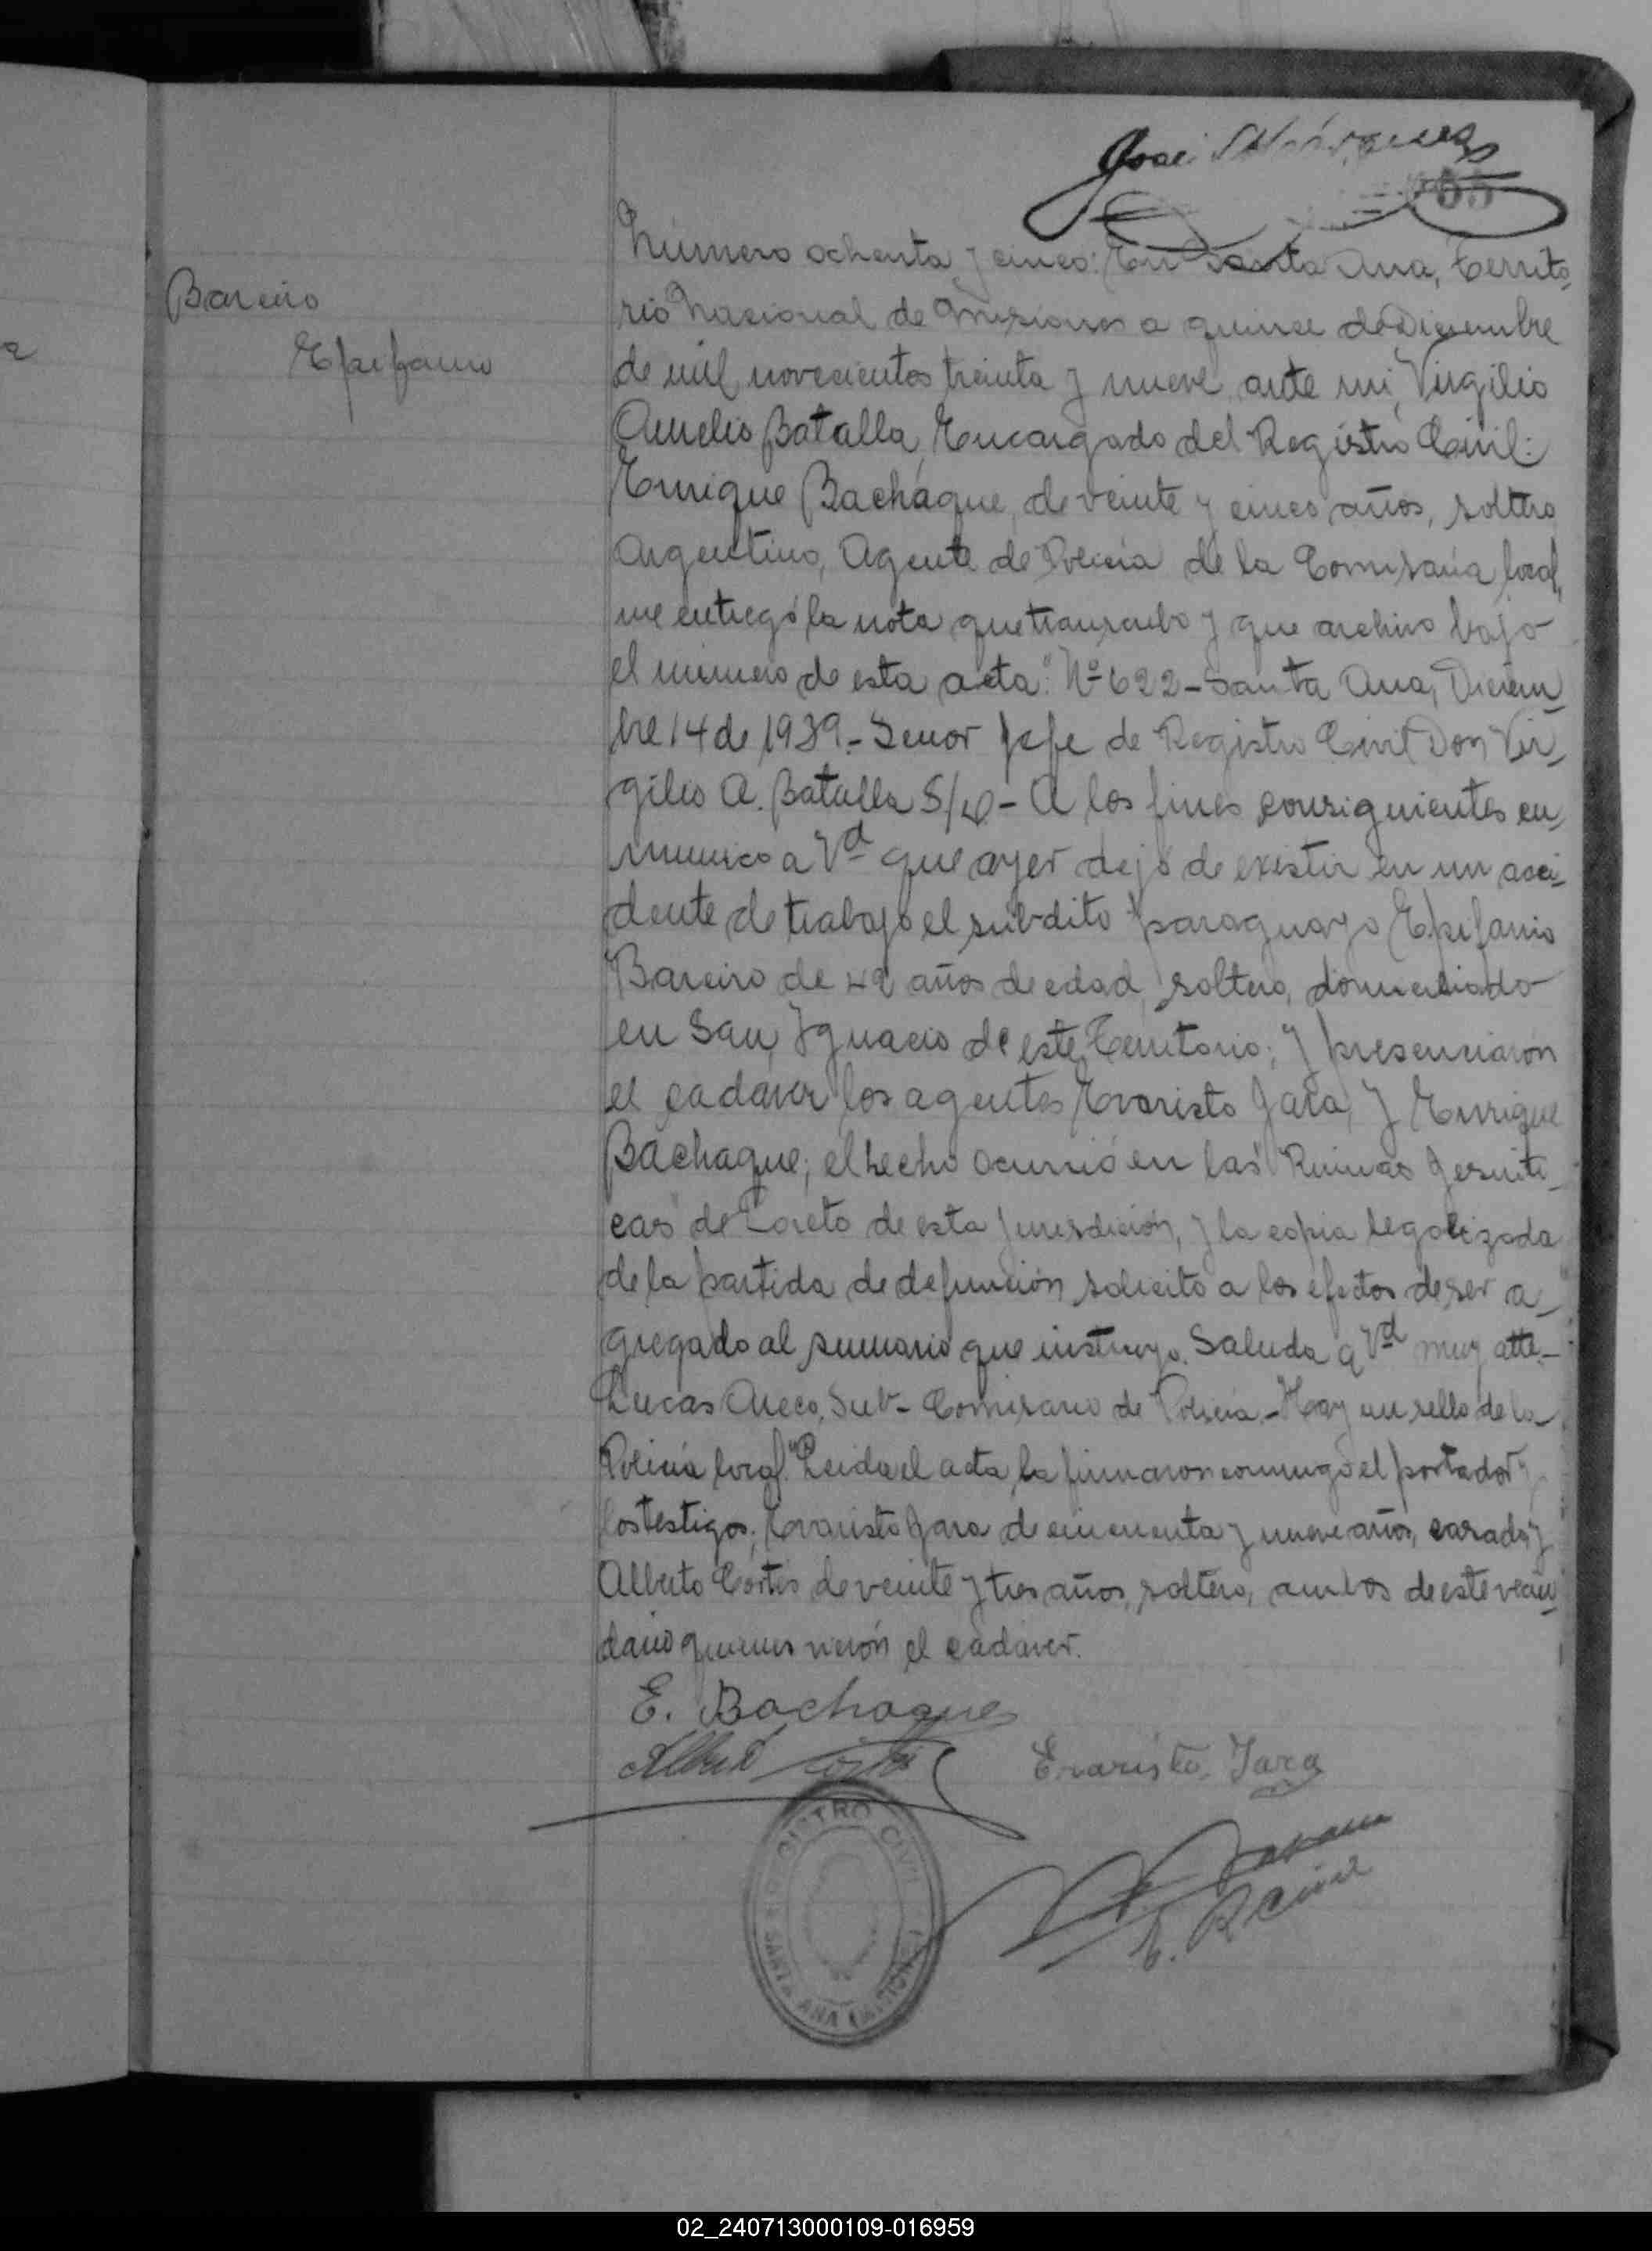 José
65
Bareiro
Epifanio
Número ochenta y cinco: En Santa Ana, Territo-
rio Nacional de Misiones a quince de Diciembre
de mil novecientos treinta y nueve, ante mi, Virgilio
Aurelio Batalla, Encargado del Registro Civil:
Enrique Bachaque, de veinte y cinco años, soltero
Argentino, Agente de Policía de la Comisaría local,
me entregó la nota que transcribo y que archivo bajo
el número de esta acta: "Nº 622 - Santa Ana, Diciem-
bre 14 de 1939. - Senor Jefe de Registro Civil Don Vir-
gilio A. Batalla S/D - A los fines consiguientes co-
munico a Vd que ayer dejó de existir en un acci-
dente de trabajo el súbdito paraguayo Epifanio
Bareiro de 42 años de edad, soltero, domiciliado
en San Ignacio de este Territorio; y presenciaron
el cadáver los agentes Evaristo Jara, y Enrique
Bachaque; el hecho ocurrió en las "Ruinas Jesuíti-
cas" de Loreto de esta jurisdición, y la copia legalizada
de la partida de defunción solicito a los efectos de ser a-
gregado al sumario que instruyo. Saluda a Vd muy atte. -
Lucas Areco, Sub-Comisario de Policía. - Hay un sello de la
Policía local." Leida el acta, la firmaron conmigo el portador y
los testigos; Evaristo Jara de cincuenta y nueve años, casado y
Alberto Cortés de veinte y tres años, soltero, ambos de este vecin-
dario quienes vieron el cadaver.
E. Bachaque
Alberto Cortés
Evaristo Jara
REGISTRO CIVIL
SANTA ANA (MISIONES)
02_240713000109-016959